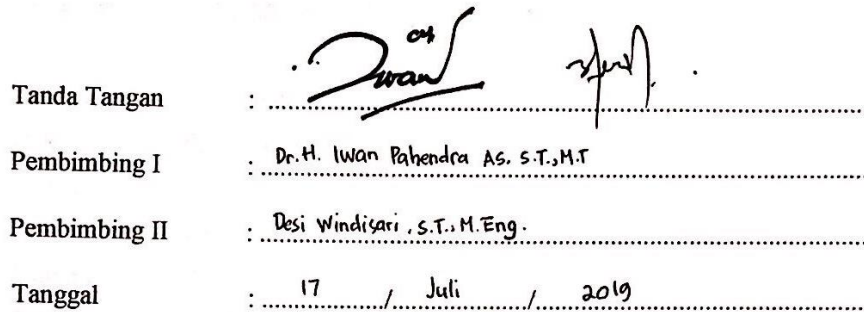 Tanda Tangan : Iwan
Pembimbing I : Dr. H. Iwan Pahendra AS. S.T., M.T
Pembimbing II : Desi Windisari, S.T., M.Eng.
Tanggal : 17 / Juli / 2019